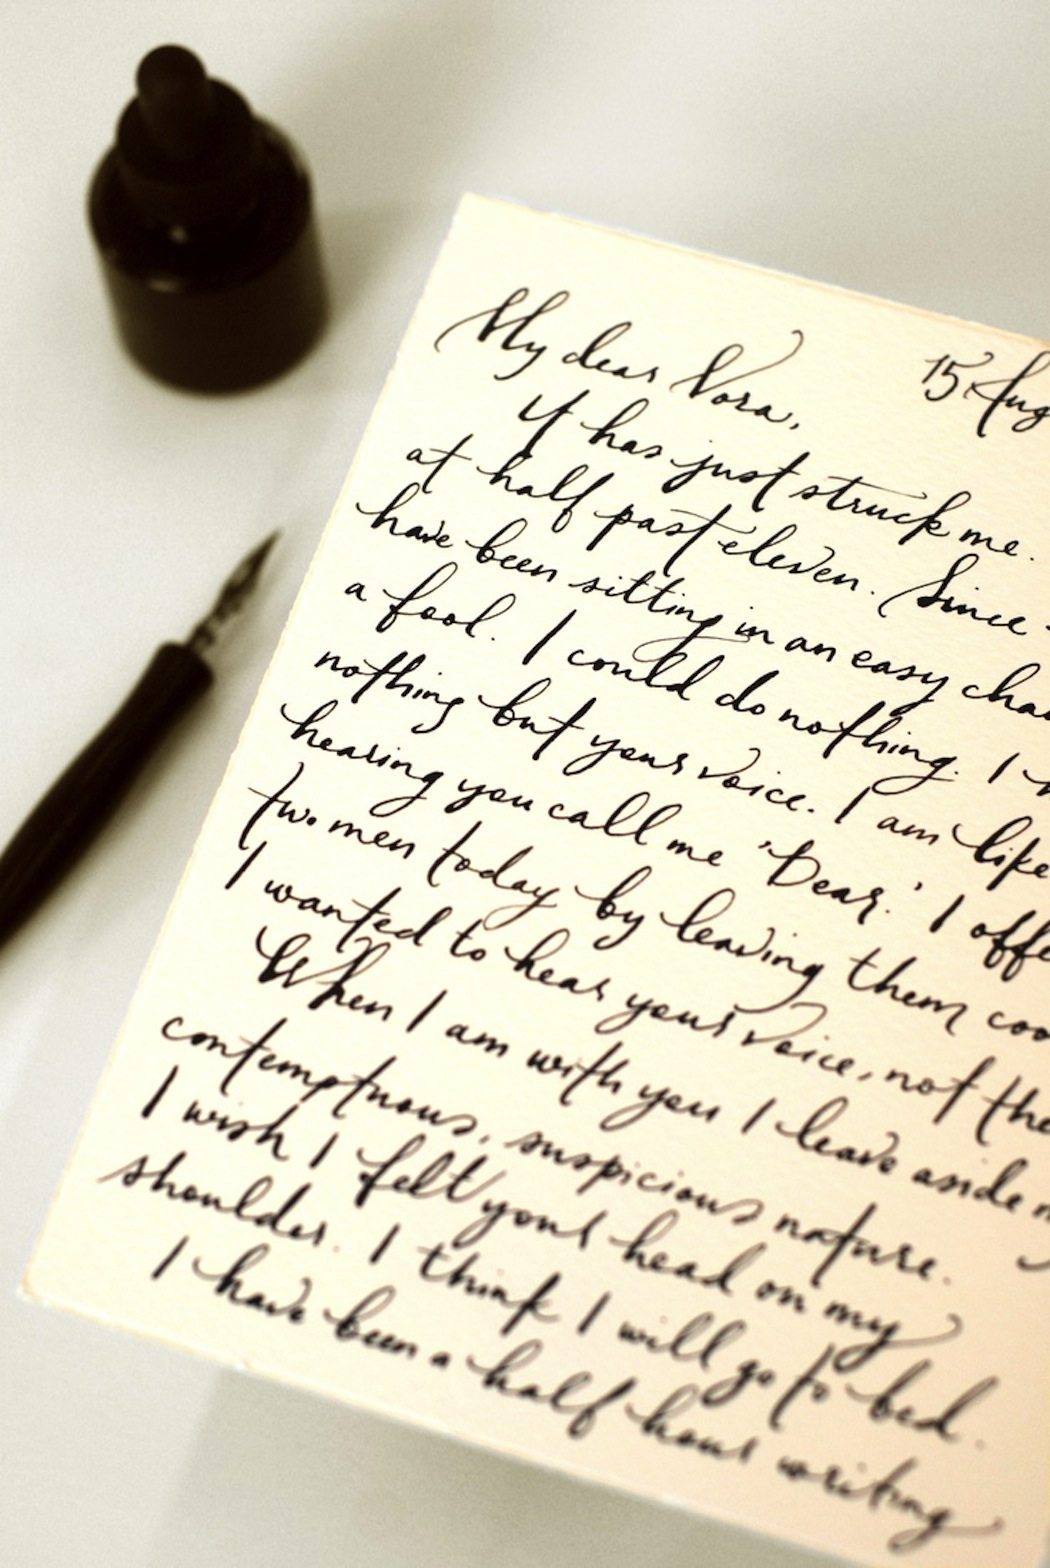 15 Aug
My dear Nora,
It has just struck me.
at half past eleven. Since
have been sitting in an easy chai
a fool. I could do nothing. I
nothing but your voice. I am like
hearing you call me 'Dear.' I offe
two men today by leaving them coo
I wanted to hear your voice, not the
When I am with you I leave aside
contemptuous, suspicious nature.
I wish I felt your head on my
shoulder. I think I will go to bed.
I have been a half hour writing